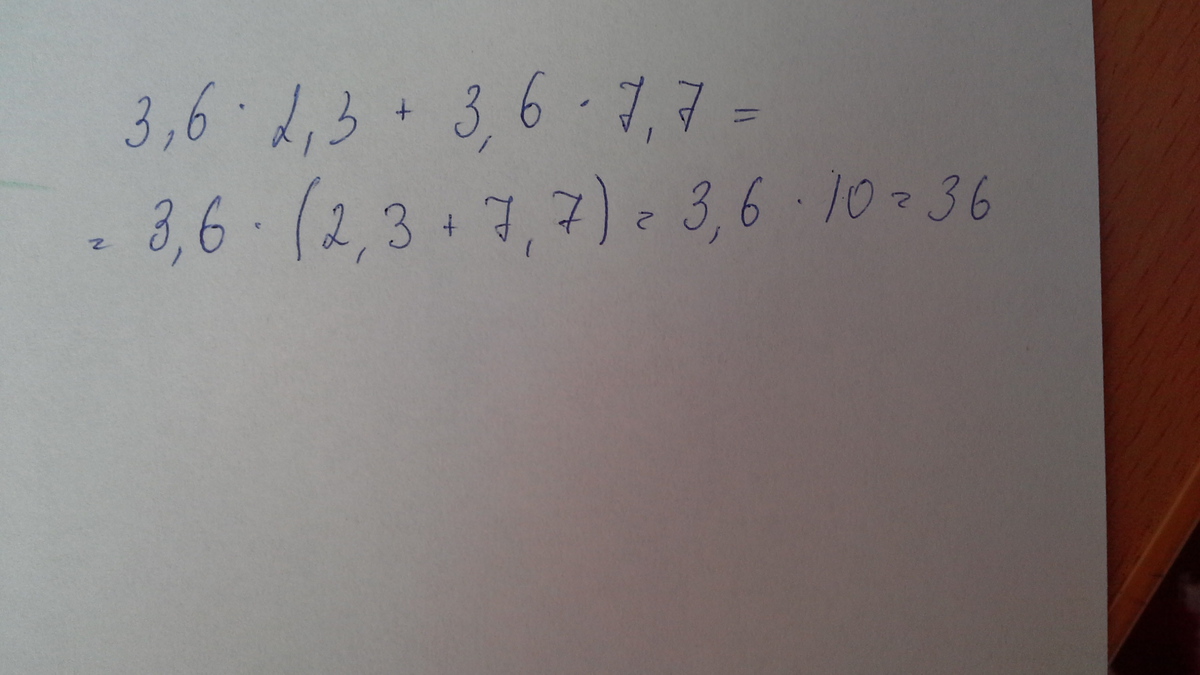 3,6 · 2,3 + 3,6 · 7,7 =
= 3,6 · (2,3 + 7,7) = 3,6 · 10 = 36